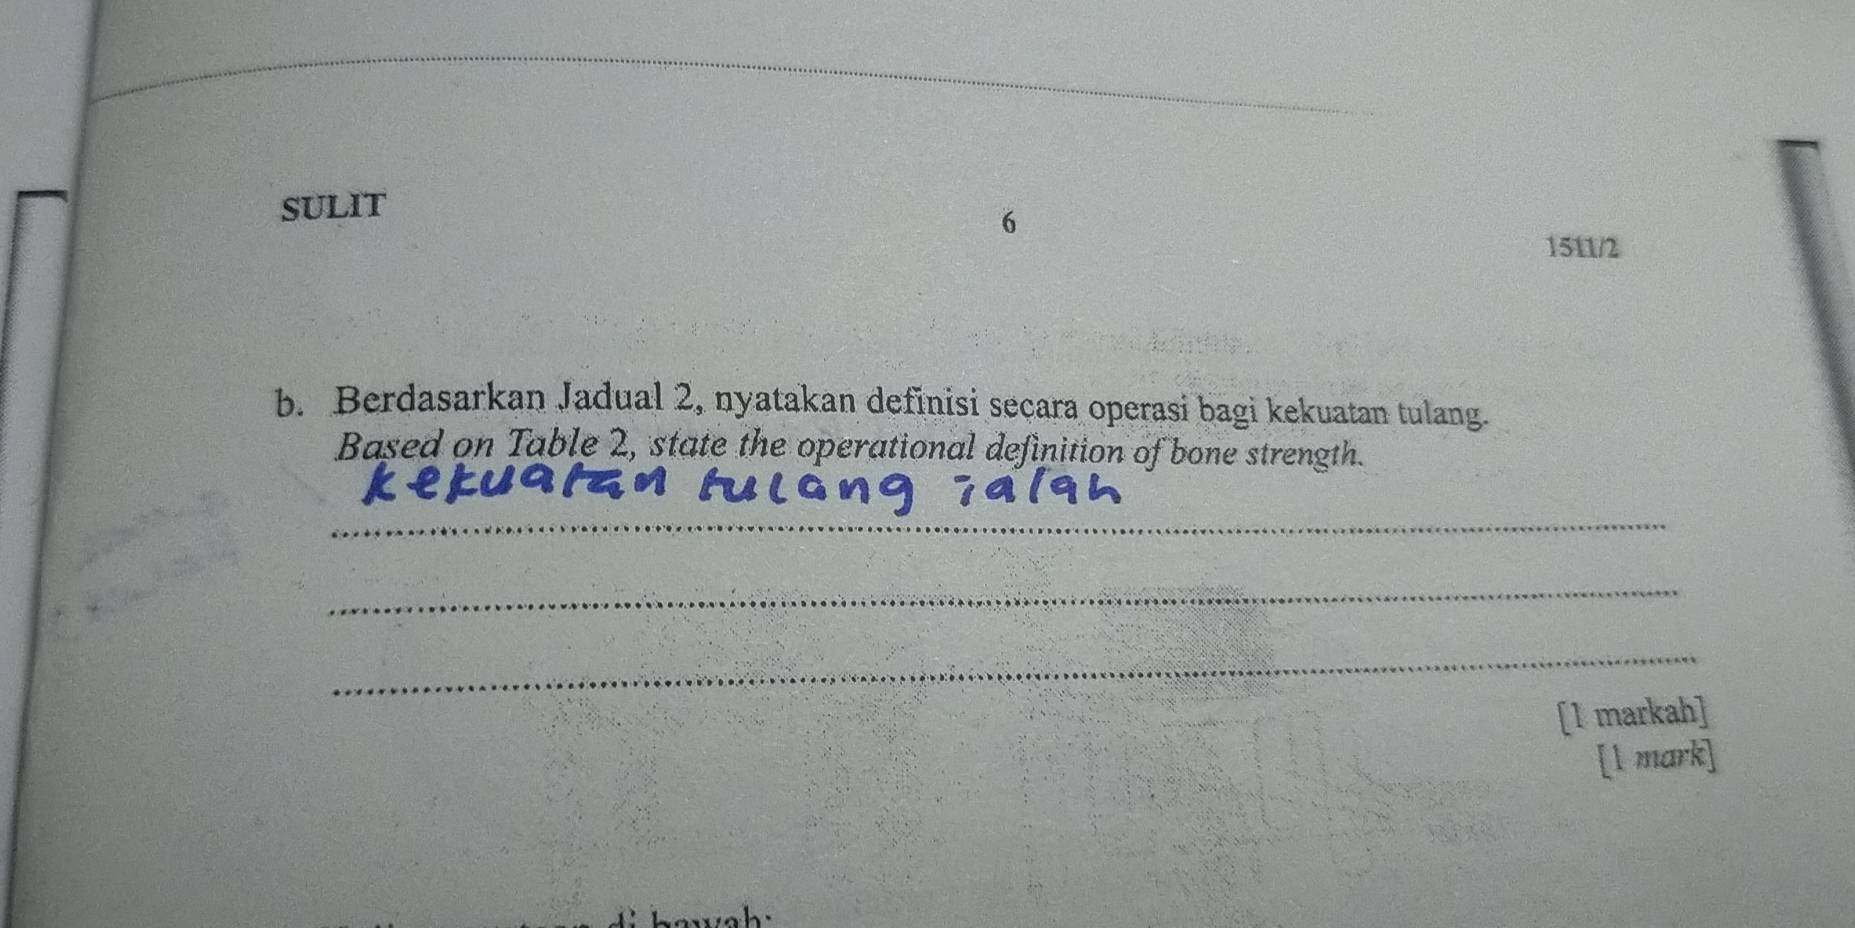 SULIT
6
1511/2
b. Berdasarkan Jadual 2, nyatakan definisi secara operasi bagi kekuatan tulang.
Based on Table 2, state the operational definition of bone strength.
kekuatan tulang ialah
[1 markah]
[1 mark]
di bawah: